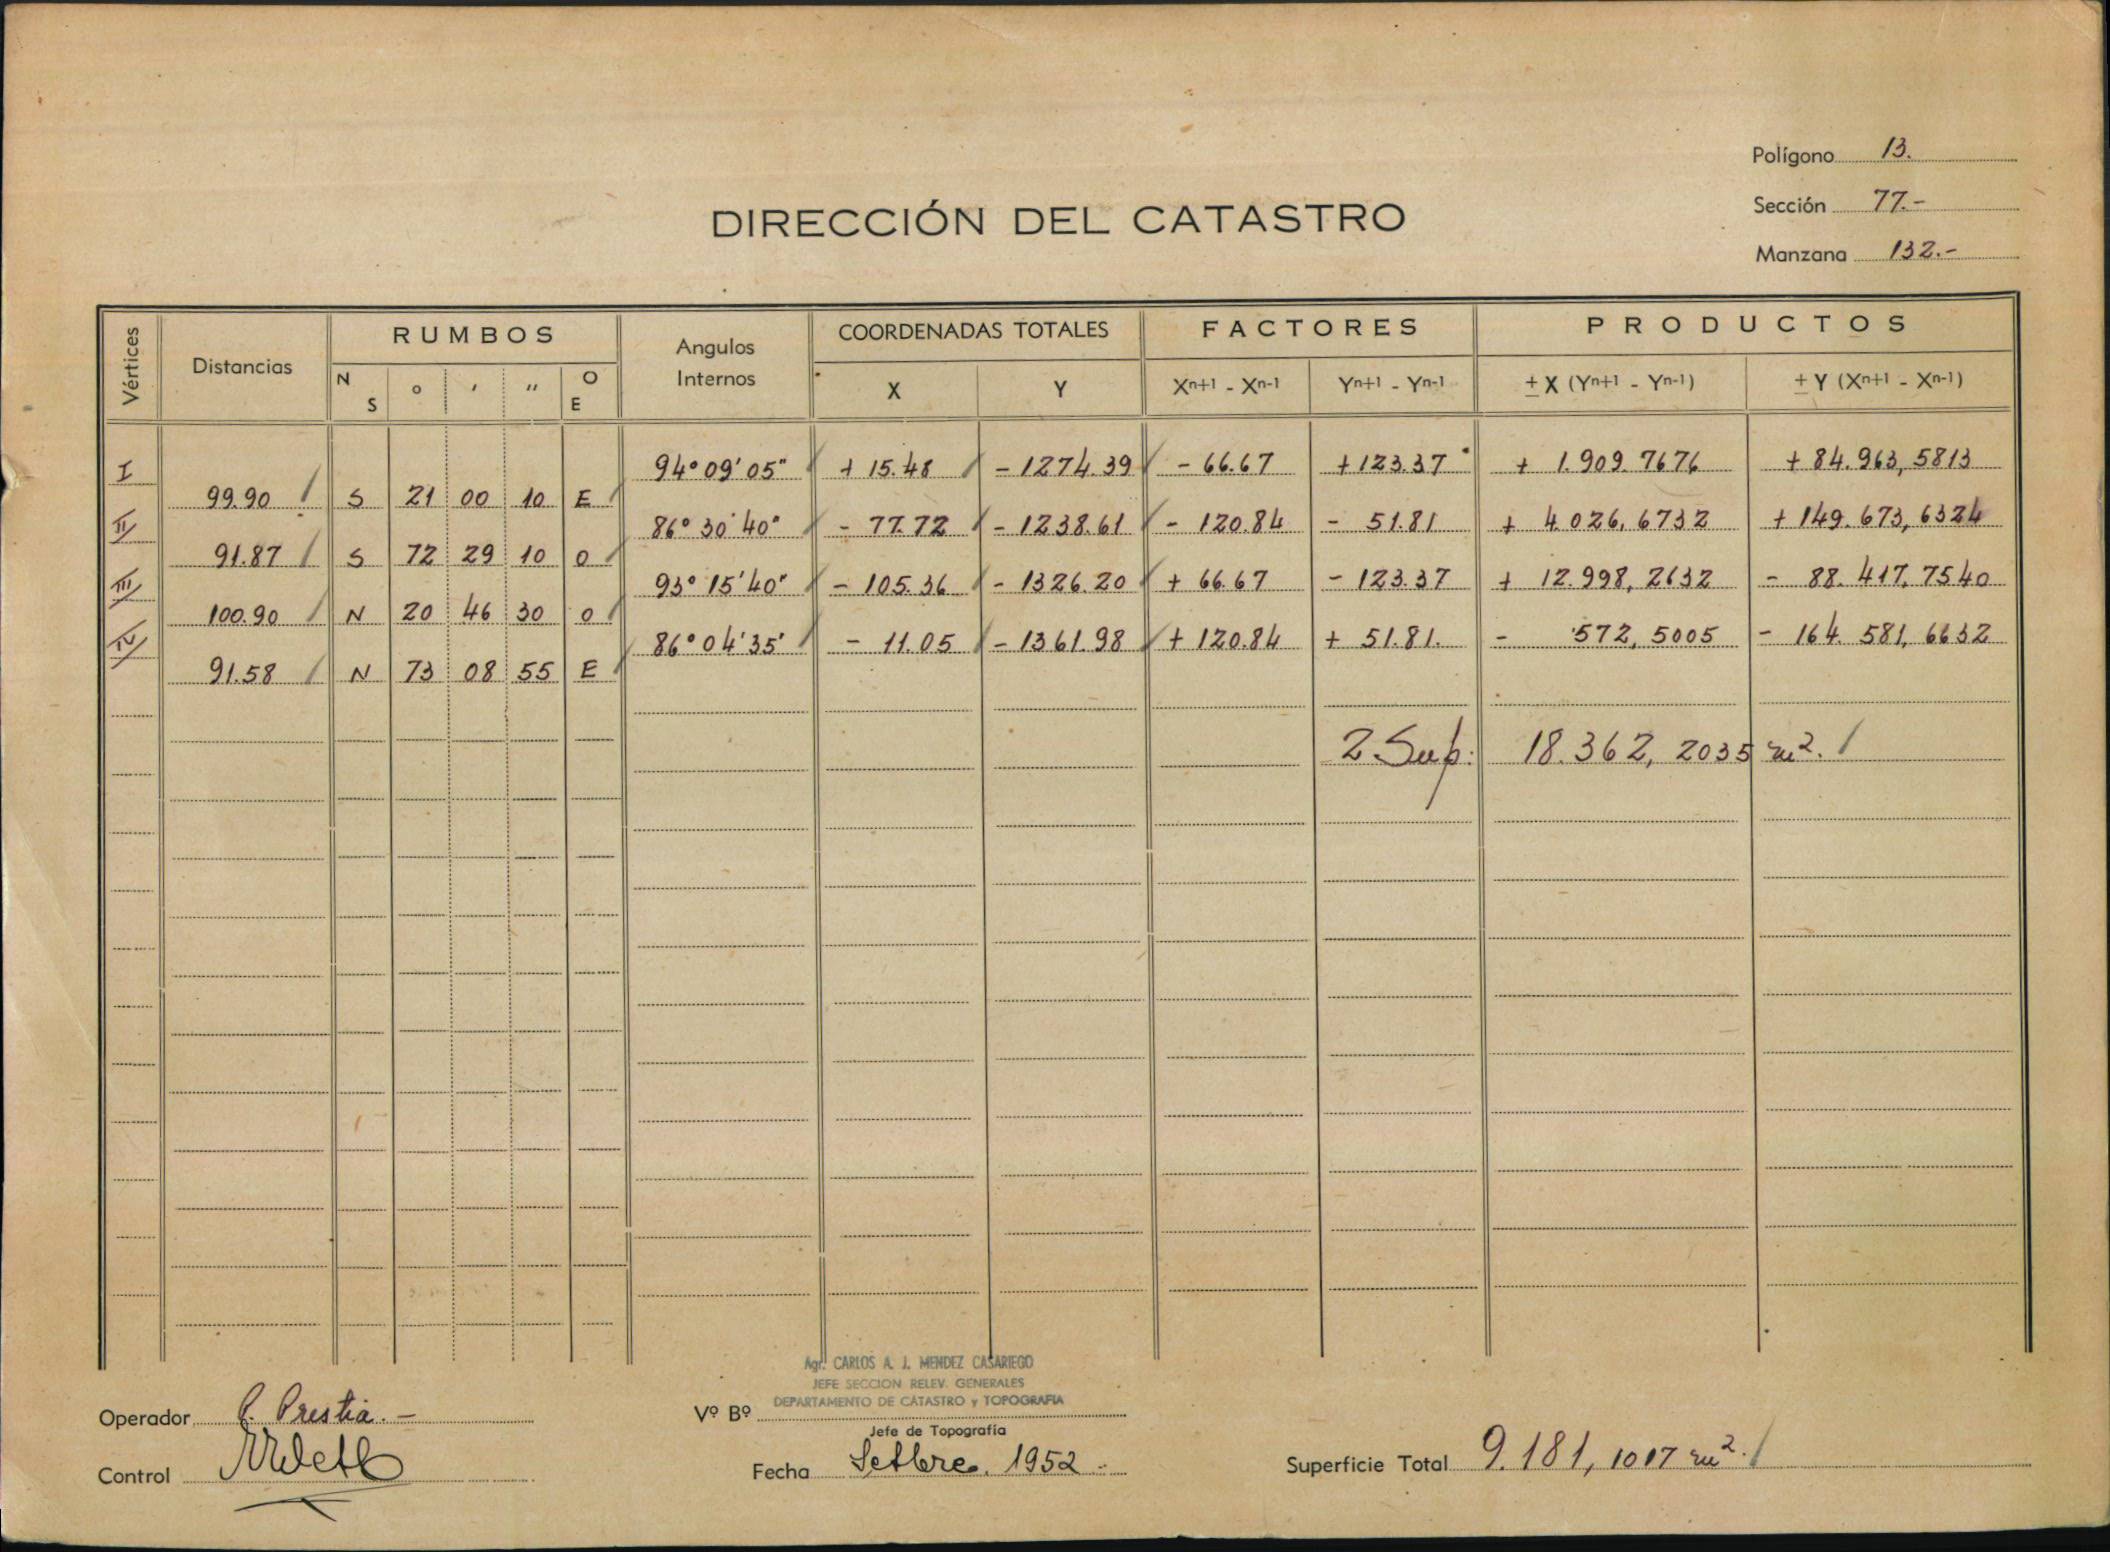 Polígono 13.
Sección 77.-
Manzana 132.-
DIRECCIÓN DEL CATASTRO
Vértices Distancias RUMBOS Angulos Internos COORDENADAS TOTALES FACTORES PRODUCTOS
N S ° ' " O E X Y Xn+1 - Xn-1 Yn+1 - Yn-1 ± X (Yn+1 - Yn-1) ± Y (Xn+1 - Xn-1)
I 94° 09' 05" + 15.48 - 1274.39 - 66.67 + 123.37 + 1.909.7676 + 84.963,5813
99.90 S 21 00 10 E
II 86° 30' 40" - 77.72 - 1238.61 - 120.84 - 51.81 + 4.026,6732 + 149.673,6324
91.87 S 72 29 10 O
III 93° 15' 40" - 105.36 - 1326.20 + 66.67 - 123.37 + 12.998,2632 - 88.417,7540
100.90 N 20 46 30 O
IV 86° 04' 35' - 11.05 - 1361.98 + 120.84 + 51.81. - 572,5005 - 164.581,6632
91.58 N 73 08 55 E
2 Sup: 18.362,2035 m2.
Agr. CARLOS A. J. MENDEZ CASARIEGO
JEFE SECCION RELEV. GENERALES
DEPARTAMENTO DE CATASTRO y TOPOGRAFIA
Operador P. Prestia.-
Vº Bº
Jefe de Topografía
Control
Fecha Setbre. 1952.-
Superficie Total 9.181,1017 m2.